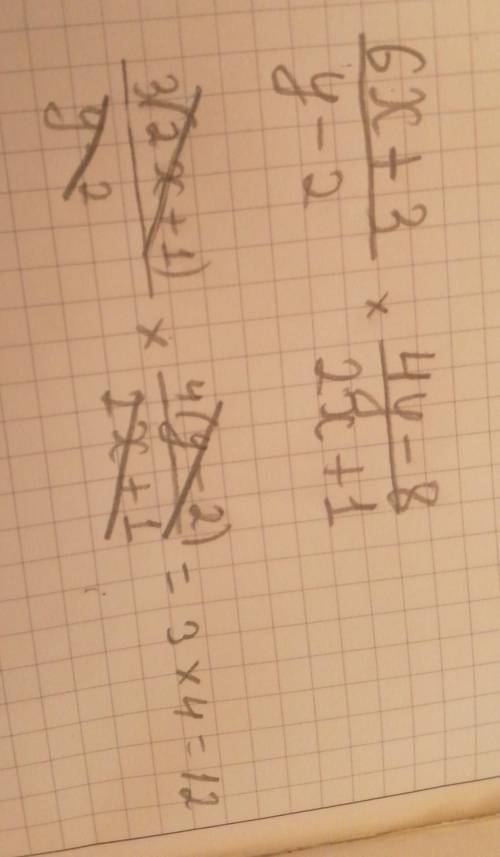 6x + 3 / y - 2 × 4y - 8 / 2x + 1
3(2x + 1) / y - 2 × 4(y - 2) / 2x + 1 = 3 × 4 = 12